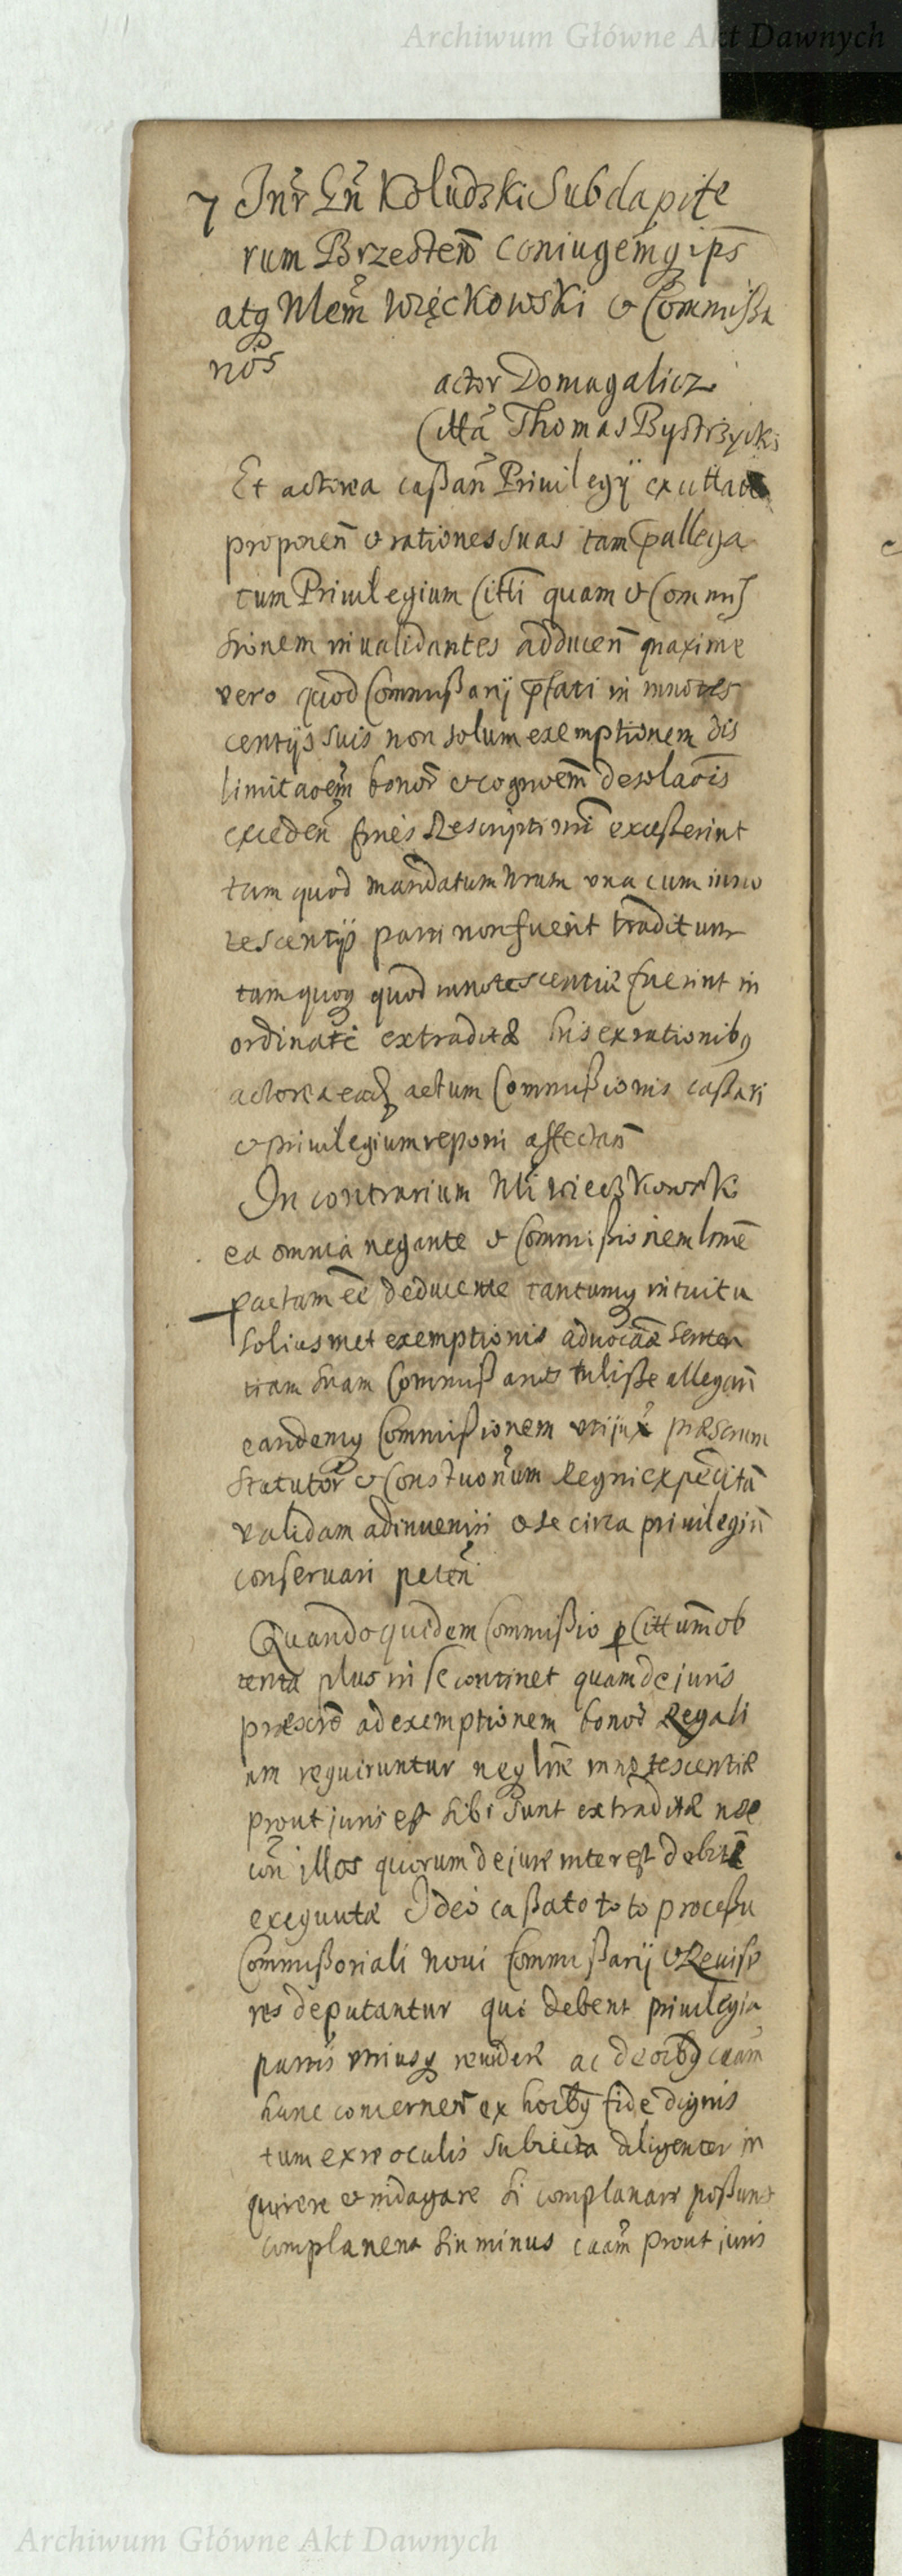 Archiwum Główne Akt Dawnych
7 Inr̃ Gñ Koludzki Subdapife
rum Brzesteñ coniugemq̃ ips̃
atq Nlem̃ Więckowski & Commißa
rios
actor Domagalicz
Citta Thomas Bystrzycki
Et actorea caßañ Priuilegij ex citta
proponeñ & rationes suas tam p̱ allega
tum Priuilegium Citti quam & Commis
sionem inualidantes adduceñ maxime
vero quod Commißarij p̃fati in innotes
centijs suis non solum exemptionem dis
limitaoẽm bonor̃ & cognoem̃ desolaõis
excedeñ fines Rescripti nr̃i exceßerint
tam quod mandatum nrum vna cum inno
tescentijs parti non fuerit traditum
tam quoq quod innotescentiæ fuerint in
ordinatè extraditæ his ex rationibq
actorea actum Commißionis caßari
& priuilegium reponi affectañ
In contrarium Nli Wieczkowski
ea omnia negante & Commißionem lr̃me
pactam eẽ deducente tantumq intuitu
soliusmet exemptionis aduocãa senten
tiam suam Commißarios tuliße allegañ
eandemq Commißionem præscrum
statutor̃ & Constuonum Regni expeditã
validam adinueniri & se circa priuilegiũ
conseruari peteñ
Quandoquidem Commißio p̱ Cittum ob
tenta plus in se continet quam de juris
præscrõ ad exemptionem bonor̃ Regali
um requiruntur neq lr̃æ innotescentiæ
prout juris est sibi sunt extraditæ nec
coñ illos quorum de jure interest debitè
exequutæ Ideo caßato toto proceßu
Commißoriali noui Commißarij & Reuiso
res deputantur qui debent priuilegia
partis vtriusq reuidere ac de oĩbq caam̃
hanc conc‍erneñ ex hoĩbq fide dignis
tum ex re oculis subiecta diligenter in
quirere & indagare si complanare poßunt
complanent sin minus caam̃ prout juris
Archiwum Główne Akt Dawnych